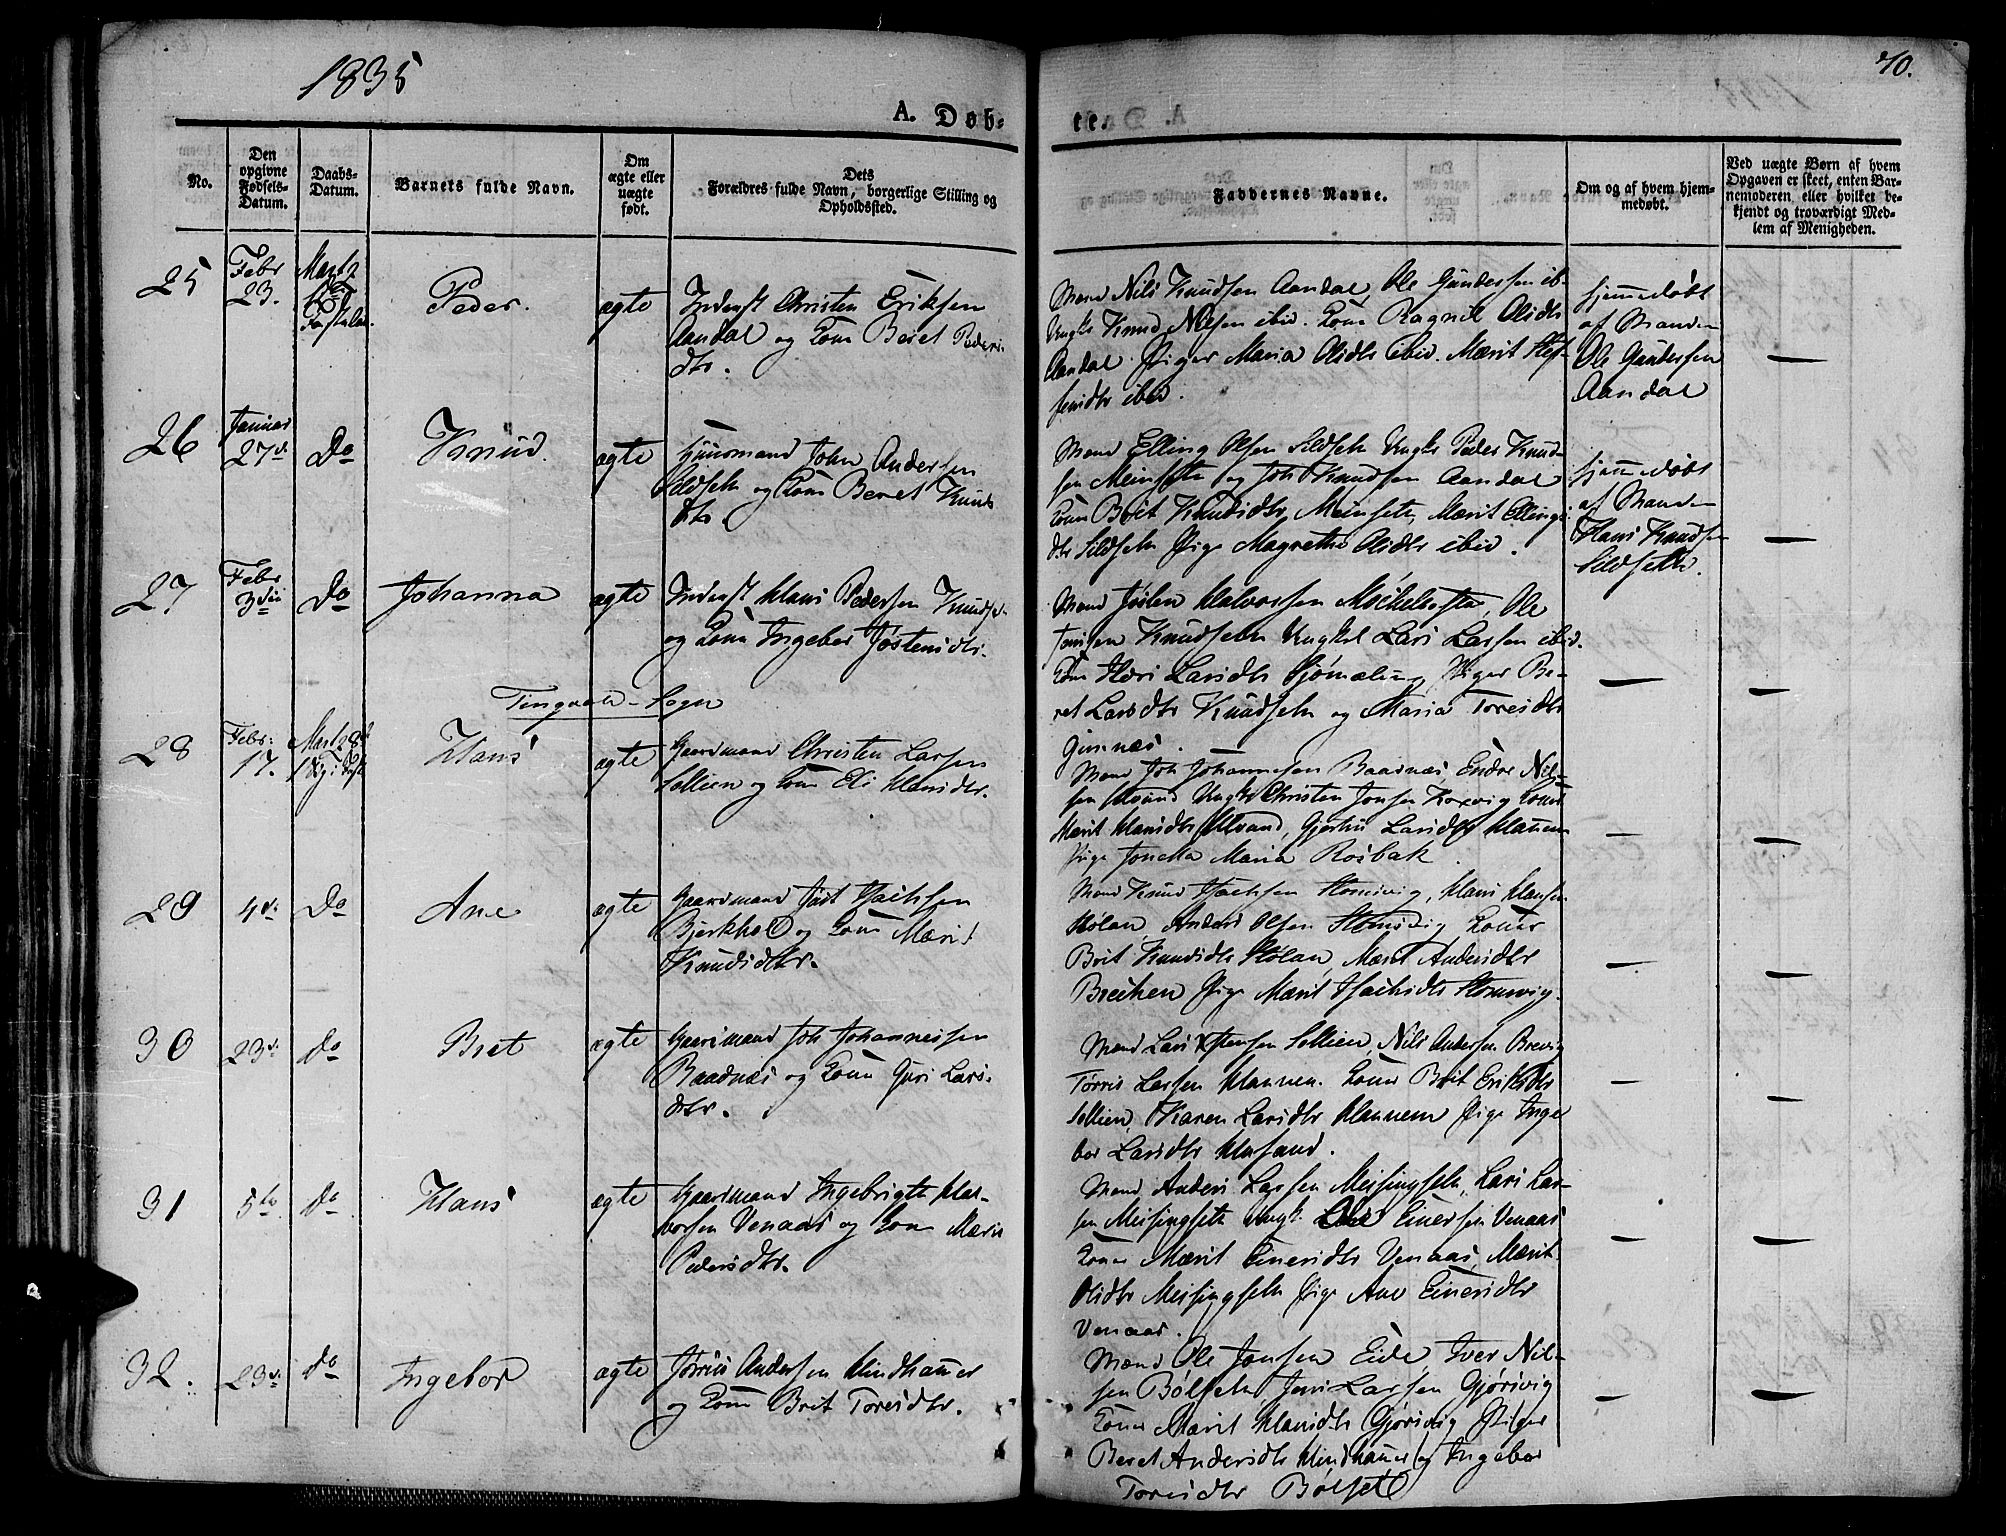 1835
70.
A. Døb-
te.
No.
Den opgivne Fødsels-Datum.
Daabs-Datum.
Barnets fulde Navn.
Om ægte eller uægte født.
Dets Forældres fulde Navn, borgerlige Stilling og Opholdssted.
Faddernes Navne.
Om og af hvem hjemmedøbt.
Ved uægte Børn af hvem Opgaven er skeet, enten Barnemoderen eller hvilket bekjendt og troværdigt Medlem af Menigheden.
25
Febr
23.
Martz
Peder.
ægte
Inderst Christen Eriksen
Aandal og Kone Beret Peders
dtr.
Mænd Nils Knudsen Aandal, Ole Gundersen ib
Ungk Knud Nilsen ibid. Kone Ragnil Olidtr
Aandal Piger Maria Olidtr ibid. Marit Stef-
fensdtr ibid.
hjemmedøbt
af Manden
Ole Gundersen
Aandal
26
Januar
27de
Do
Knud.
ægte
Huusmand John Andersen
Sildset og Kone Beret Knuds
dtr.
Mænd Elling Olsen Sildset Ungk Peder Knud-
sen Meinseth og Joh Knudsen Aandal
Kone Brit Knudsdtr Meinseth, Marit Ellings
dtr Sildseth Pige Magrethe Olidtr ibid.
hjemmedøbt
af Manden
Hans Knudsen
Sildseth.
27
Febr
3die
Do
Johanna
ægte
Inderst Hans Pedersen Knudse-
og Kone Ingebor Jøstensdtr.
Mænd Halvorsen Ole
Jensen Knudseth Ungkl Lars Larsen ibid.
Kone Larsdtr Piger Be-
ret Larsdtr Knudseth og Maria Toresdtr
Gimnæs.
Tingvold-Sogn
28
Febr:
17.
Martz 8de
Hans
ægte
Gaardmand Christen Larsen
Sollien og Kone Eli Hansdtr.
Mænd Joh Johannesen Baadnæs, Endre Nil-
sen Ungk Christen Jonsen Koxvig Kone
Marit Hansdtr Larsdtr Hannem
Pige Maria Rosbak.
29
4de
Do
Ane
ægte
Gaardmand
Bjerkhol og Kone Marit
Knudsdtr.
Mænd Knud Hans Hansen
Hølan, Anders Olsen Koner
Brit Knudsdtr Hølan, Marit Andersdtr
Breiken Pige Marit
30
23de
do
Bret
ægte
Gaardmand Joh Johannessen
Baadnæs og Kone Guri Lars-
dtr.
Mænd Lars Sollien, Nils Andersen Brevig
Tørris Larsen Hannem. Koner Brit Eriksdtr
Sollien, Karen Larsdtr Hannem Pige Inge
bor Larsdtr
31
5te
do
Hans
ægte
Gaardmand Ingebrigt Hal-
vorsen Venaas og Kone Marit
Pedersdtr.
Mænd Anders Larsen Meisingseth, Lars Lar-
sen Meisingseth Ungk. Ole Einersen Venaas
Koner Marit Einersdtr Venaas, Marit
Olidtr Meisingseth Pige Ane Einersdtr
Venaas.
32.
23de
do
Ingebor
ægte
Tørris Andersen Hindhammer
og Kone Brit Toresdtr.
Mænd Ole Jonsen Eide, Iver Nil-
sen Bølseth, Jens Larsen Gjørsvig
Koner Marit Hansdtr Gjørsvig Piger
Beret Andersdtr Hindhammer og Ingebor
Toresdtr Bølset